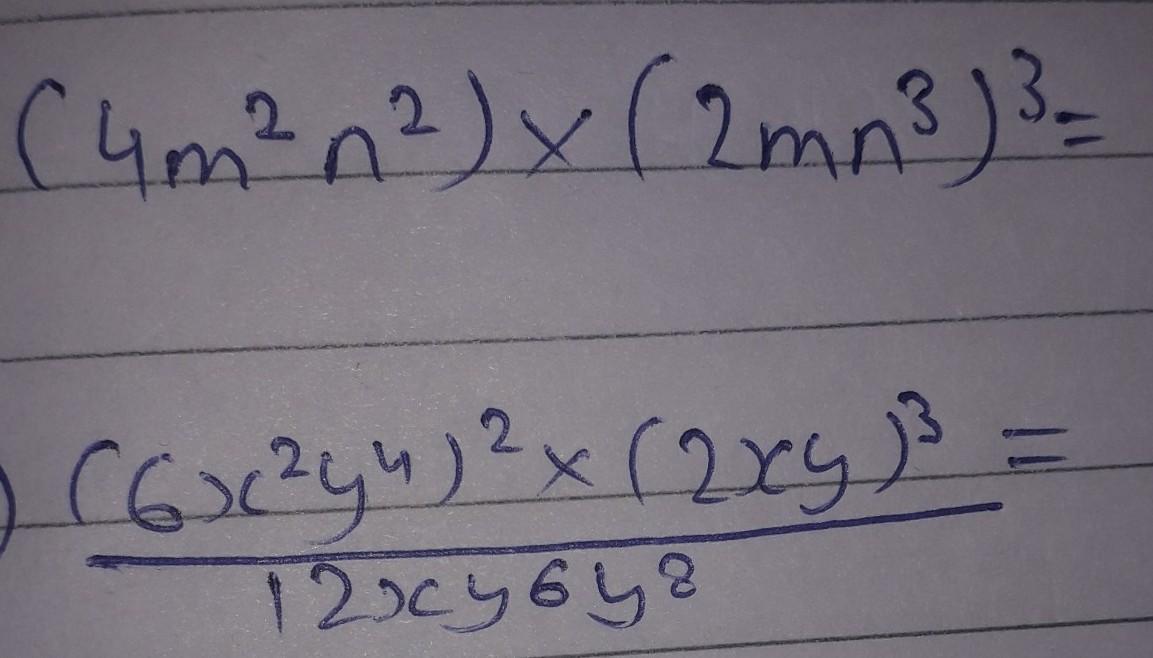 (4m²n²)×(2mn³)³=
) (6x²y⁴)²×(2xy)³ =
12xy6y8